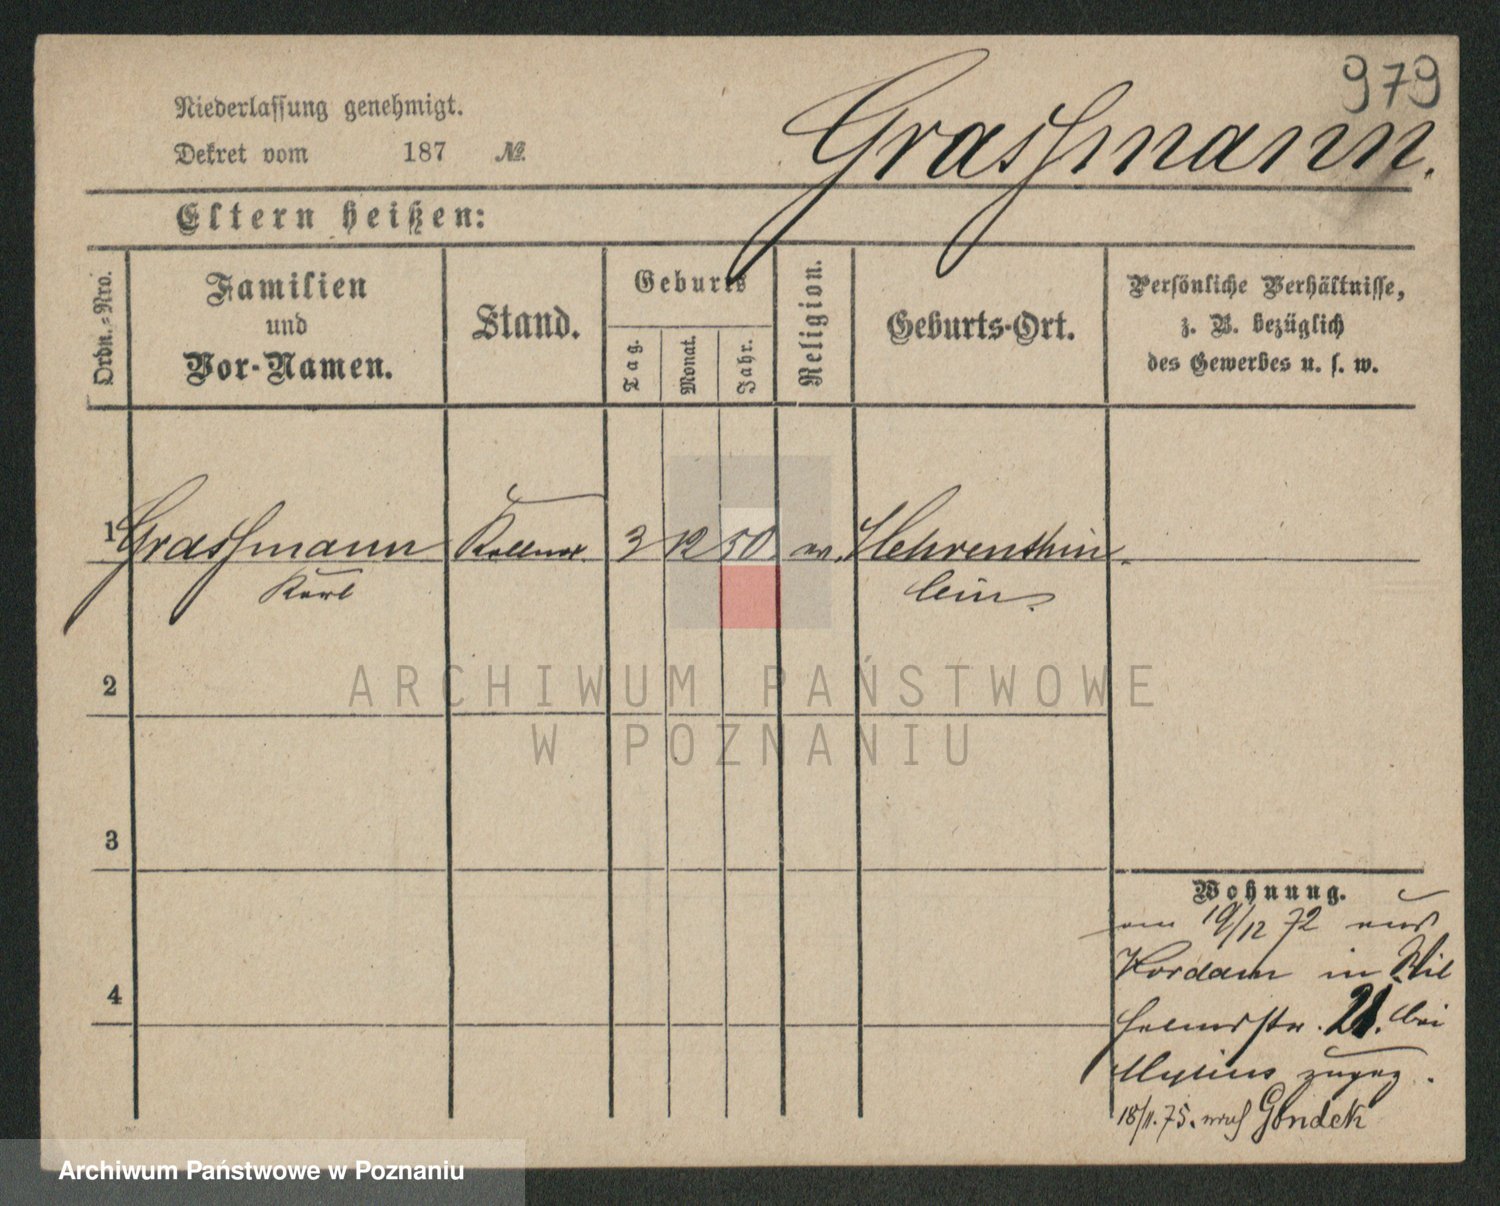 979
Grassmann.
Niederlassung genehmigt.
Dekret vom 187 №
Eltern heißen:
Ordn.-Nro.
Familien
und
Vor-Namen.
Stand.
Geburts
Tag.
Monat.
Jahr.
Religion.
Geburts-Ort.
Persönliche Verhältnisse,
z. B. bezüglich
des Gewerbes u. s. w.
1 Grassmann Kellner. 3 12 50
Karl
2
3
4
Wohnung.
am 19/12 72 aus
in Wil
helmsstr. 21. bei
Mylius zugez.
18/11. 75. nach Gondek
ARCHIWUM PAŃSTWOWE
W POZNANIU
Archiwum Państwowe w Poznaniu